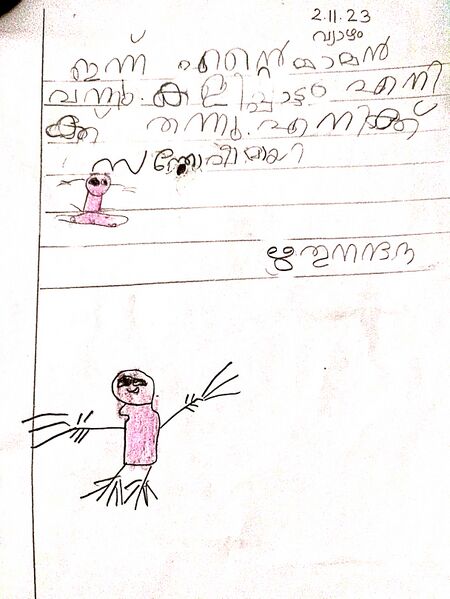 2.11.23
വ്യാഴം
ഇന്ന് എന്റെ മാമൻ
വന്നു. കളിപ്പാട്ടം എനി
ക്ക തന്നു. എനിക്ക്
സന്തോഷമായി
ഋതുനന്ദന